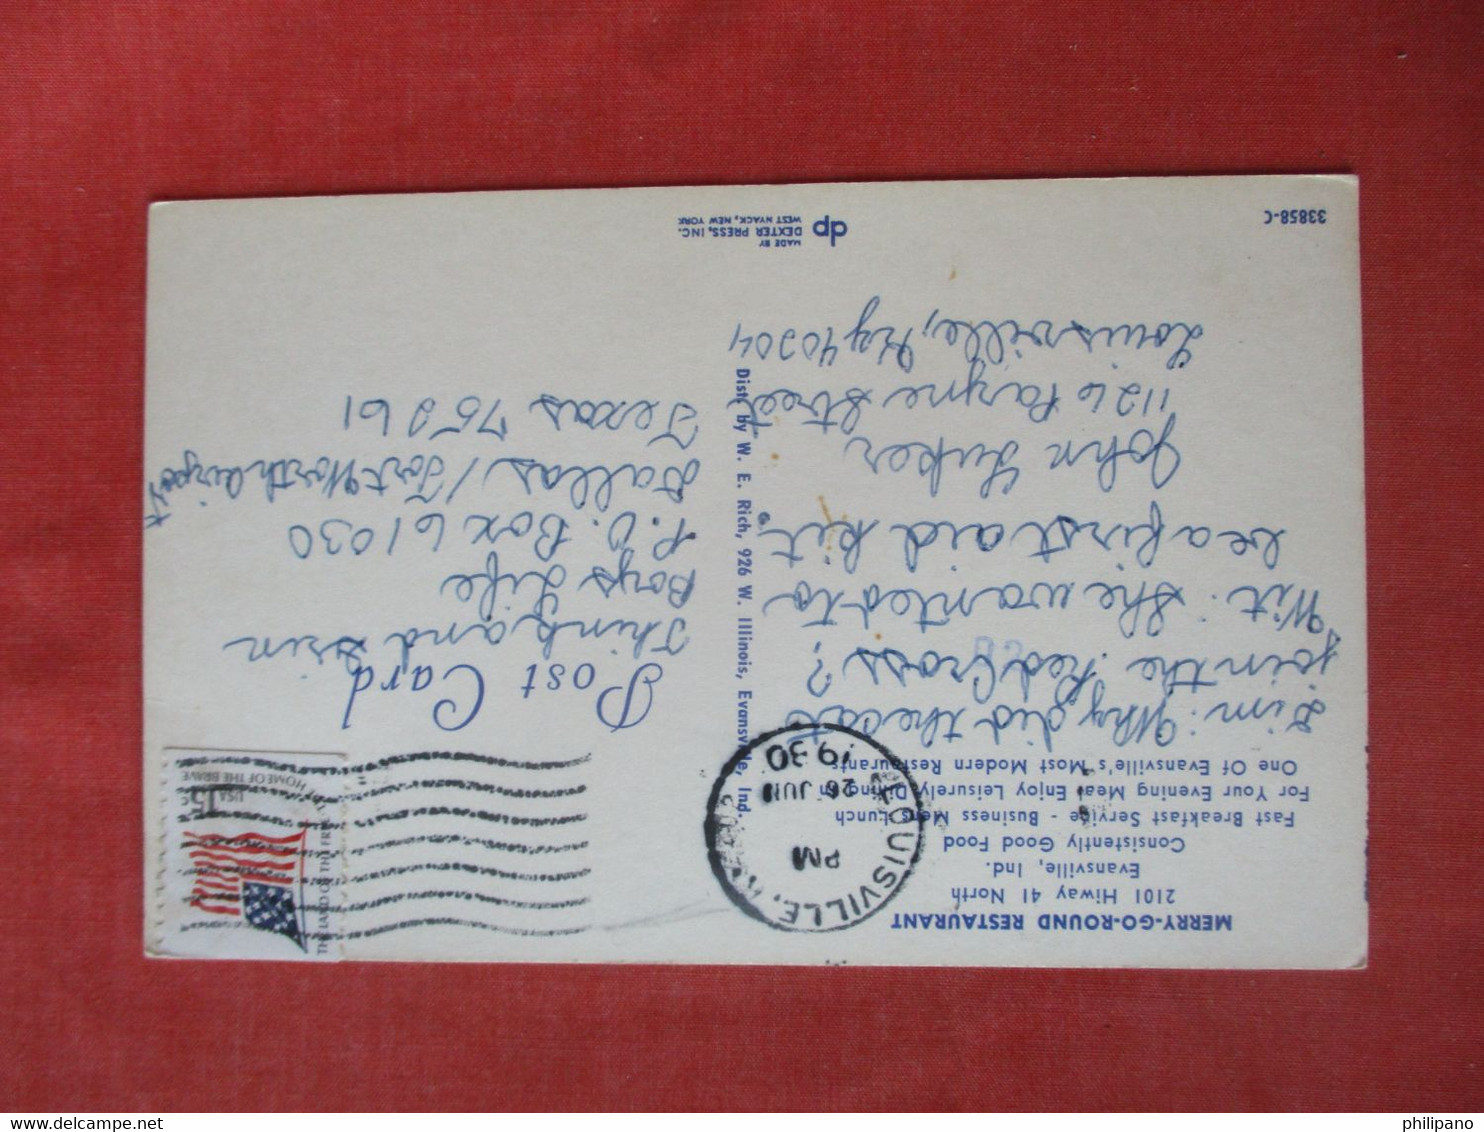 MERRY-GO-ROUND RESTAURANT
2101 Hiway 41 North
Evansville, Ind.
Consistently Good Food
Fast Breakfast Service - Business Mens Lunch
For Your Evening Meal Enjoy Leisurely Dining in
One Of Evansville's Most Modern Restaurants
Jim: Why did the cat
join the Red Cross?
Wit: She wanted to
be a first aid kit.
John
1126 Payne Street
Louisville, Ky 40204
33858-C
LOUISVILLE,
PM
26 JUN
1930
Dist. by W. E. Rich, 926 W. Illinois, Evansville, Ind.
MADE BY
dp DEXTER PRESS, INC.
WEST NYACK, NEW YORK
THE LAND OF THE FREE
HOME OF THE BRAVE
USA 15c
Post Card
Think and Grin
Boys Life
P.O. Box 61030
Dallas / Fort Worth Airport
Texas 75261
philipano
delcampe.net